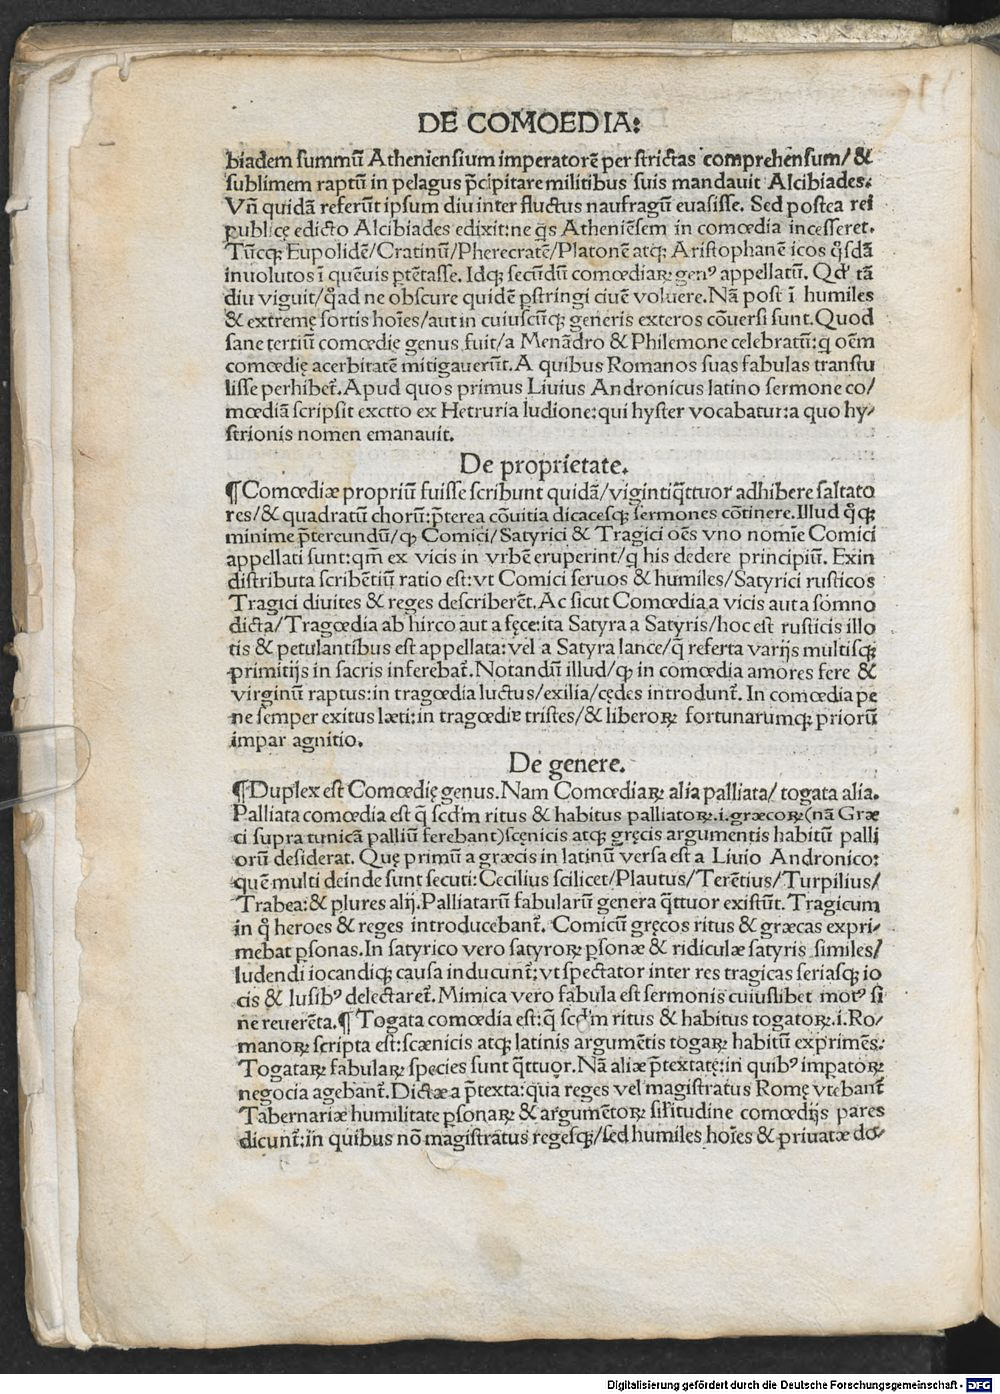 DE COMOEDIA:
biadem summū Atheniensium imperatorē per strictas comprehensum/ &
sublimem raptū in pelagus p̄cipitare militibus suis mandauit Alcibiades.
Vn̄ quidā referūt ipsum diu inter fluctus naufragū euasisse. Sed postea rei
publicę edicto Alcibiades edixit: ne q̄s Atheniēsem in comœdia incesseret.
Tūcq; Eupolidē/Cratinū/Pherecratē/Platonē atq; Aristophanē icos q̊sdā
inuolutos ī quēuis ꝑtētasse. Idq; secūdū comœdiaꝝ genꝰ appellatū. Qd' tā
diu viguit/q̊ad ne obscure quidē ꝑstringi ciuē voluere. Nā post ī humiles
& extremę sortis hoīes/aut in cuiuscūq; generis exteros cōuersi sunt. Quod
sane tertiū comœdię genus fuit/a Menādro & Philemone celebratū: q oēm
comœdię acerbitatē mitigauerūt. A quibus Romanos suas fabulas transtu
lisse perhibet̄. Apud quos primus Liuius Andronicus latino sermone co/
mœdiā scripsit exctto ex Hetruria ludione: qui hyster vocabatur: a quo hy/
strionis nomen emanauit.
De proprietate.
¶ Comœdiæ propriū fuisse scribunt quidā/vigintiq̄ttuor adhibere saltato
res/& quadratū chorū: p̄terea cōuitia dicacesq; sermones cōtinere. Illud q̊q;
minime p̄tereundū/ꝙ Comici/Satyrici & Tragici oēs vno nomīe Comici
appellati sunt: qm̄ ex vicis in vrbē eruperint/q his dedere principiū. Exin
distributa scribētiū ratio est: vt Comici seruos & humiles/Satyrici rusticos
Tragici diuites & reges describerēt. Ac sicut Comœdia a vicis aut a somno
dicta/Tragœdia ab hirco aut a fęce: ita Satyra a Satyris/hoc est rusticis illo
tis & petulantibus est appellata: vel a Satyra lance/q̄ referta varijs multisq;
primitijs in sacris inferebat̄. Notandū illud/ꝙ in comœdia amores fere &
virginū raptus: in tragœdia luctus/exilia/cędes introdunt̄. In comœdia pe
ne semper exitus læti: in tragœdie tristes/& liberoꝝ fortunarumq; priorū
impar agnitio.
De genere.
¶ Duplex est Comœdię genus. Nam Comœdiaꝝ alia palliata/ togata alia.
Palliata comœdia est q̄ scd'm ritus & habitus palliatoꝝ .i. græcoꝝ (nā Græ
ci supra tunicā palliū ferebant) scęnicis atq; gręcis argumentis habitū palli
orū desiderat. Quę primū a græcis in latinū versa est a Liuio Andronico:
quē multi deinde sunt secuti: Cecilius scilicet/Plautus/Terētius/Turpilius/
Trabea: & plures alij. Palliatarū fabularū genera q̄ttuor existūt. Tragicum
in q̊ heroes & reges introducebant̄. Comicū gręcos ritus & græcas expri/
mebat ꝑsonas. In satyrico vero satyroꝝ ꝑsonæ & ridiculæ satyris similes/
ludendi iocandiq; causa inducunt̄: vt spectator inter res tragicas seriasq; io
cis & lusibꝰ delectaret̄. Mimica vero fabula est sermonis cuiuslibet motꝰ si
ne reuerēta. ¶ Togata comœdia est: q̄ scd'm ritus & habitus togatoꝝ .i. Ro/
manoꝝ scripta est: scænicis atq; latinis argumētis togaꝝ habitū exprimēs:
Togataꝝ fabulaꝝ species sunt q̄ttuor. Nā aliæ p̄textatę: in quibꝰ impatoꝝ
negocia agebant̄. Dictæ a p̄texta: qua reges vel magistratus Romę vtebant̄
Tabernariæ humilitate ꝑsonaꝝ & argumētoꝝ sil'itudine comœdijs pares
dicunt̄: in quibus nō magistratus regesq;/sed humiles hoīes & priuatæ do/
Digitalisierung gefördert durch die Deutsche Forschungsgemeinschaft - DFG